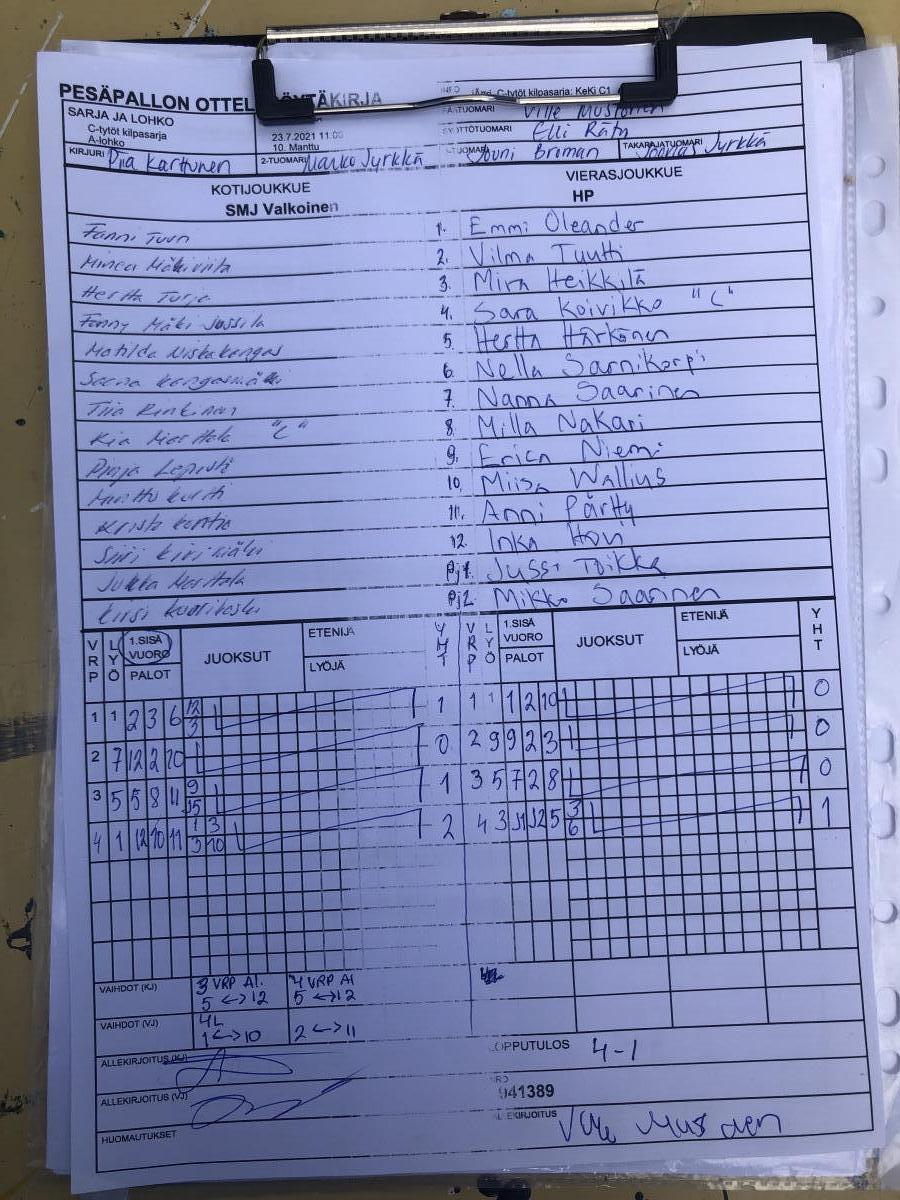 PESÄPALLON OTTEL ÖYTÄKIRJA
C-tytöt kilpasarja: KeKi C1
SARJA JA LOHKO
C-tytöt kilpasarja
A-lohko
23.7.2021 11:00
10. Manttu
Ville Mustonen
Elli Räty
KIRJURI Piia Karttunen
2-TUOMARI Marko Jyrkkä
Jouni Broman
TAKARAJATUOMARI Joonas Jyrkkä
KOTIJOUKKUE
SMJ Valkoinen
VIERASJOUKKUE
HP
Fanni Tuuri 1. Emmi Oleander
Minea Mäkiviita 2. Vilma Tuutti
Hertta Turja 3. Mira Heikkilä
Fanny Mäki-Jussila 4. Sara Koivikko "C"
Matilda Niskakangas 5. Hertta Härkönen
Saana Kangasmäki 6. Nella Sarnikorpi
Tiia Rinkinen 7. Nanna Saarinen
Kia Marttala "C" 8. Milla Nakari
Pinja Lepistö 9. Erica Niemi
10. Miisa Wallius
Krista 11. Anni Pärtty
Siiri Kivimäki 12. Inka Hovi
Jukka Marttala Pj1. Jussi Toikka
Kirsi Kuorikoski Pj2. Mikko Saarinen
VRP LYÖ 1.SISÄ VUORO PALOT JUOKSUT ETENIJÄ LYÖJÄ YHT VRP LYÖ 1.SISÄ VUORO PALOT JUOKSUT ETENIJÄ LYÖJÄ YHT
1 1 2 3 6 12 3 1 1 1 1 2 10 0
2 7 12 2 10 0 2 9 9 2 3 0
3 5 5 8 11 9 15 1 3 5 7 2 8 0
4 1 12 10 11 1 3 3 10 2 4 3 11 12 5 3 6 1
VAIHDOT (KJ) 3 VRP AL. 5 <-> 12 4 VRP Al 5 <-> 12
VAIHDOT (VJ) 4L 1 <-> 10 2 <-> 11
ALLEKIRJOITUS (KJ)
LOPPUTULOS 4-1
ALLEKIRJOITUS (VJ)
941389
HUOMAUTUKSET
ALLEKIRJOITUS Ville Mustonen